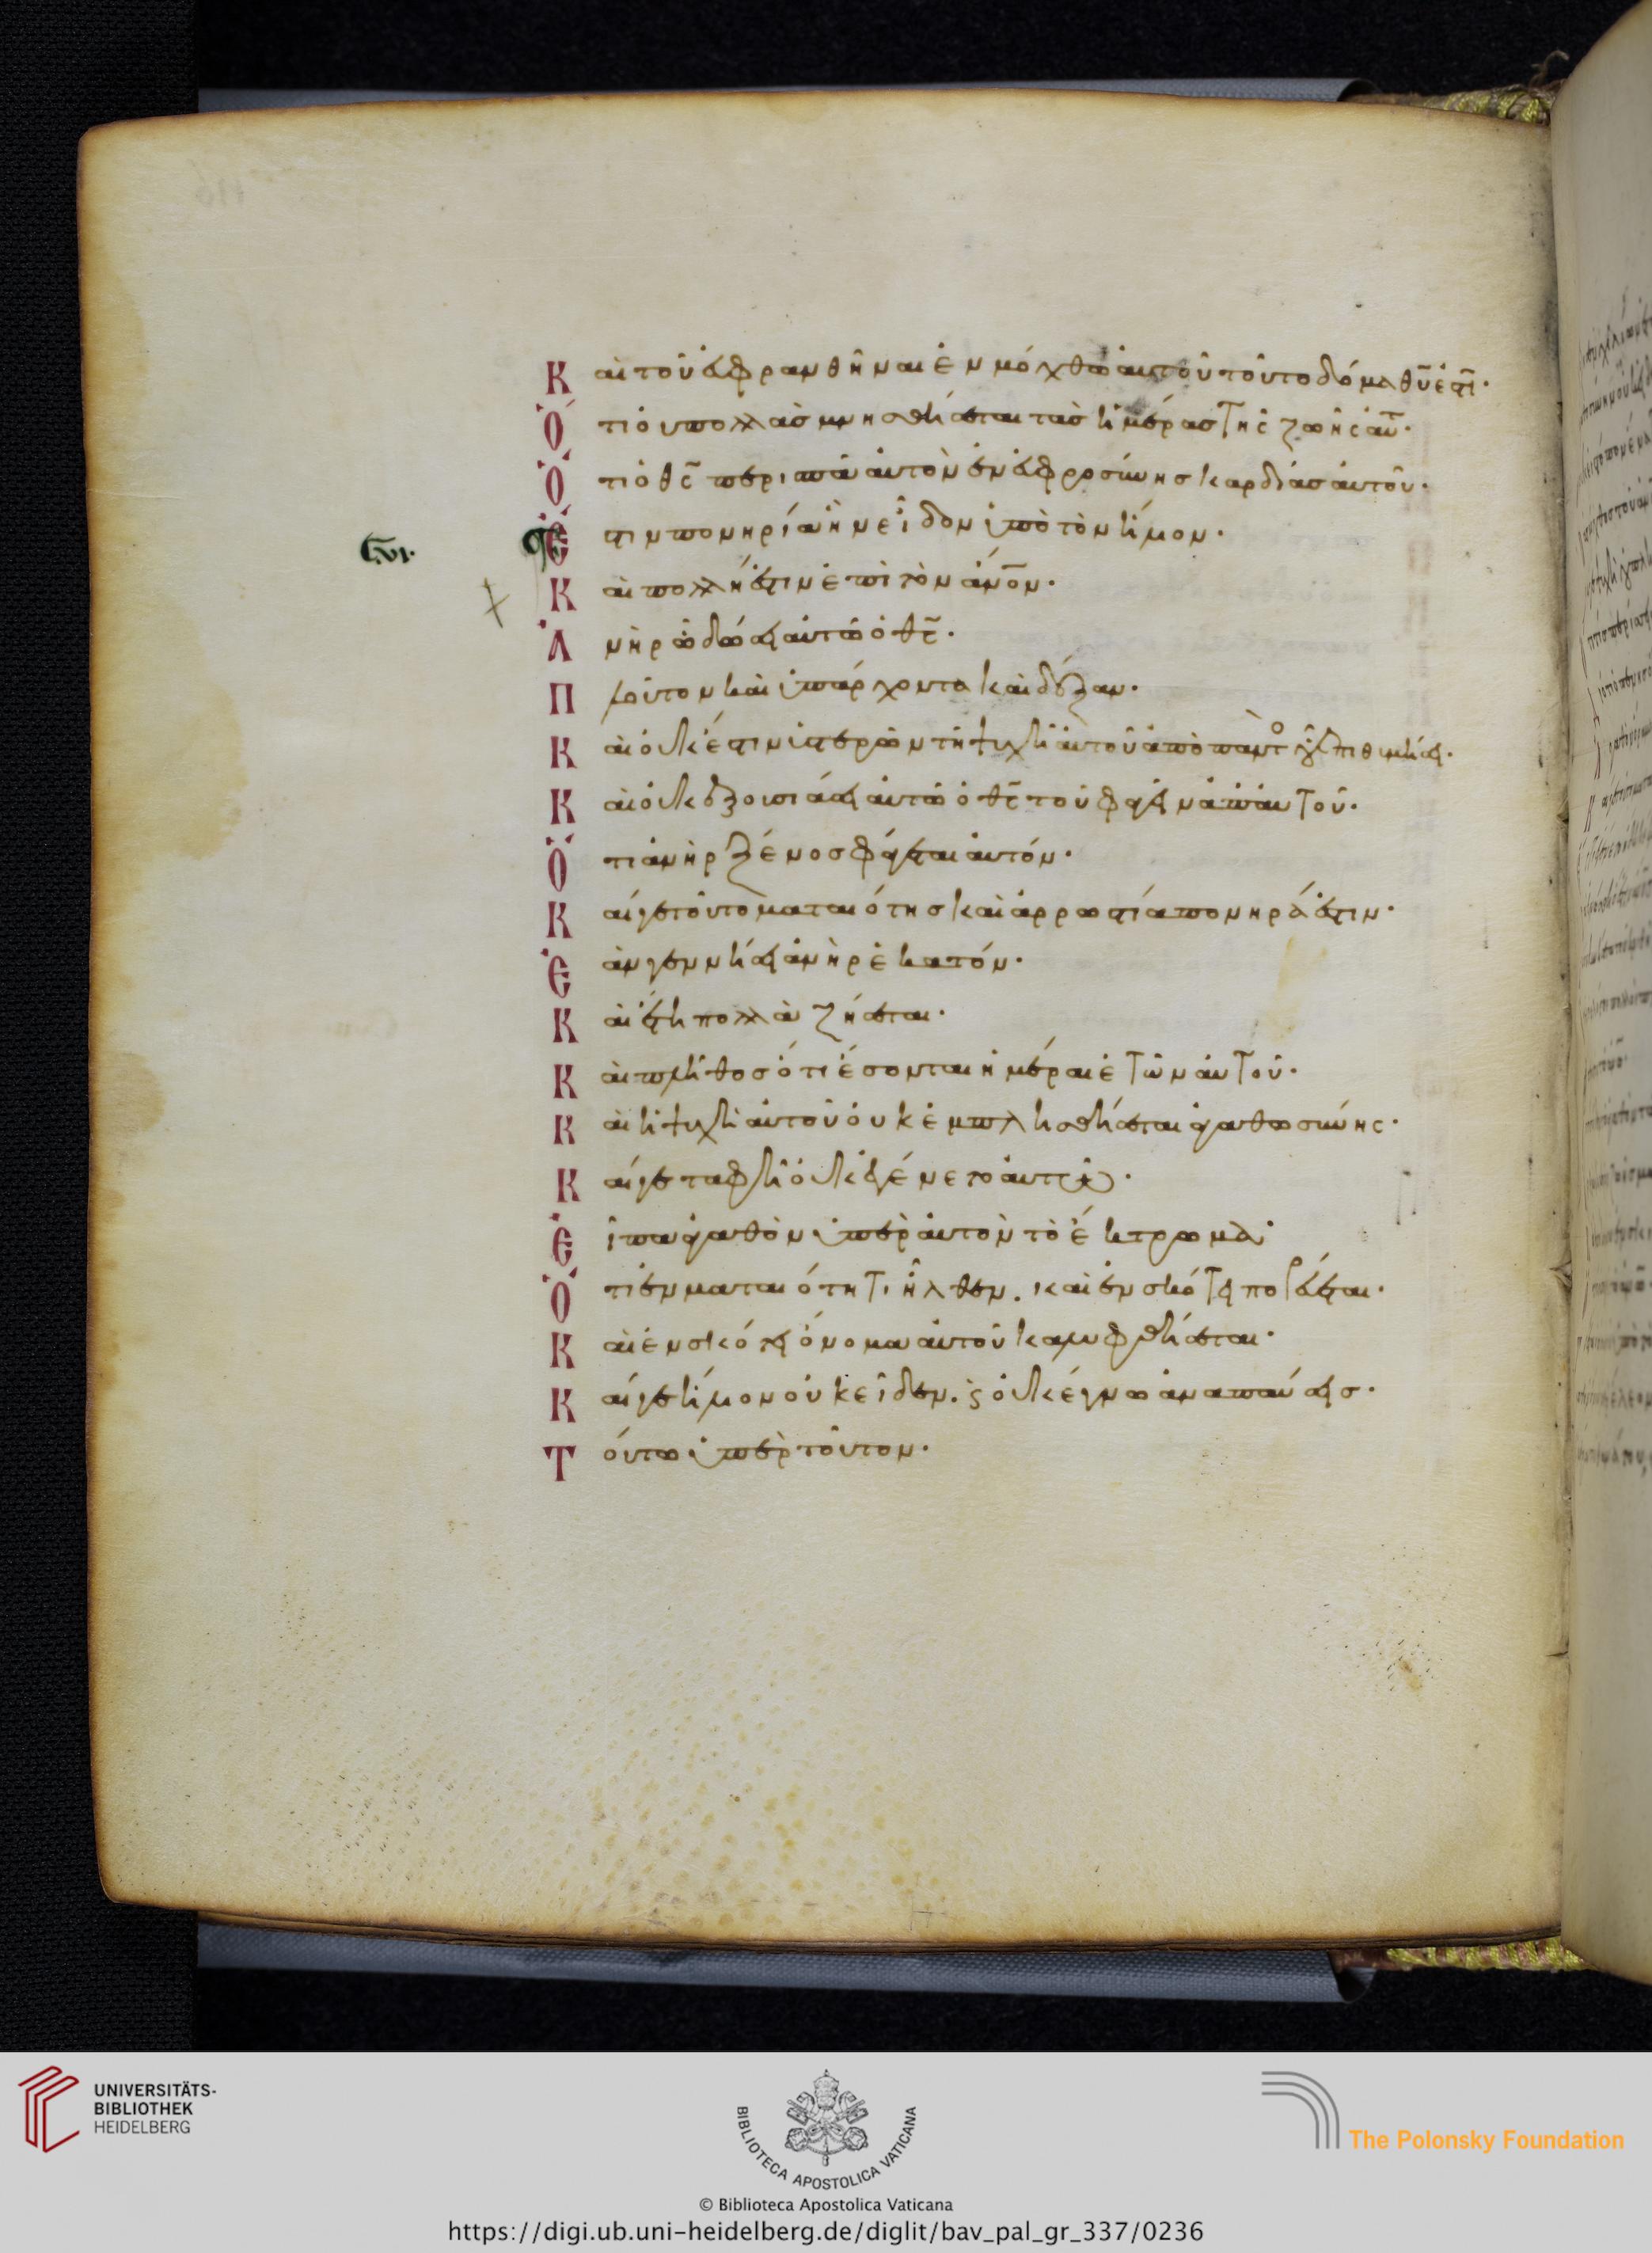 Καὶ τοῦ εὐφρανθῆναι ἐν μόχθω αὐτοῦ τοῦτο δόμα θῦ ἐστι·
Ὅτι οὐ πολλὰς μνησθήσεται τὰς ἡμέρας τῆς ζωῆς αὐτ·
Ὅτι ὁ θς περισπᾶ αὐτὸν ἐν εὐφροσύνης καρδίας αὐτοῦ·
Ἔστιν πονηρία ἣν εἶδον ὑπὸ τὸν ἥλιον·
Καὶ πολλή ἐστιν ἐπὶ τὸν ἄνον·
Ἀνὴρ ὧ δώσει αὐτῶ ὁ θς·
Πλοῦτον καὶ ὑπάρχοντα καὶ δόξαν·
Καὶ οὐκ ἔστιν ὑστερῶν τῆ ψυχῆ αὐτοῦ ἀπὸ παντ οὗ ἐπιθυμήσει·
Καὶ οὐκ ἐξουσιάσει αὐτῶ ὁ θς τοῦ φαγεῖν ἀπ' αὐτοῦ·
Ὅτι ἀνὴρ ξένος φάγεται αὐτόν·
Καί γε τοῦτο ματαιότης καὶ ἀρρωστία πονηρά ἐστιν·
Ἐὰν γεννήσει ἀνὴρ ἑκατόν·
Καὶ ἔτη πολλὰ ζήσεται·
Καὶ πλῆθος ὅτι ἔσονται ἡμέραι ἐτῶν αὐτοῦ·
Καὶ ἡ ψυχὴ αὐτοῦ οὐκ ἐμπλησθήσεται ἀγαθωσύνης·
Καί γε ταφὴ οὐκ ἐγένετο αὐτῶ·
Εἶπα ἀγαθὸν ὑπὲρ αὐτὸν τὸ ἔκτρωμα·
Ὅτι ἐν ματαιότητι ἦλθεν. καὶ ἐν σκότει πορεύεται·
Καὶ ἐν σκότει ὄνομα αὐτοῦ καλυφθήσεται·
Καί γε ἥλιον οὐκ εἶδεν. κ οὐκ ἔγνω ἀναπαύσεις·
Τούτω ὑπὲρ τοῦτον·
UNIVERSITÄTS-
BIBLIOTHEK
HEIDELBERG
BIBLIOTECA APOSTOLICA VATICANA
The Polonsky Foundation
© Biblioteca Apostolica Vaticana
https://digi.ub.uni-heidelberg.de/diglit/bav_pal_gr_337/0236